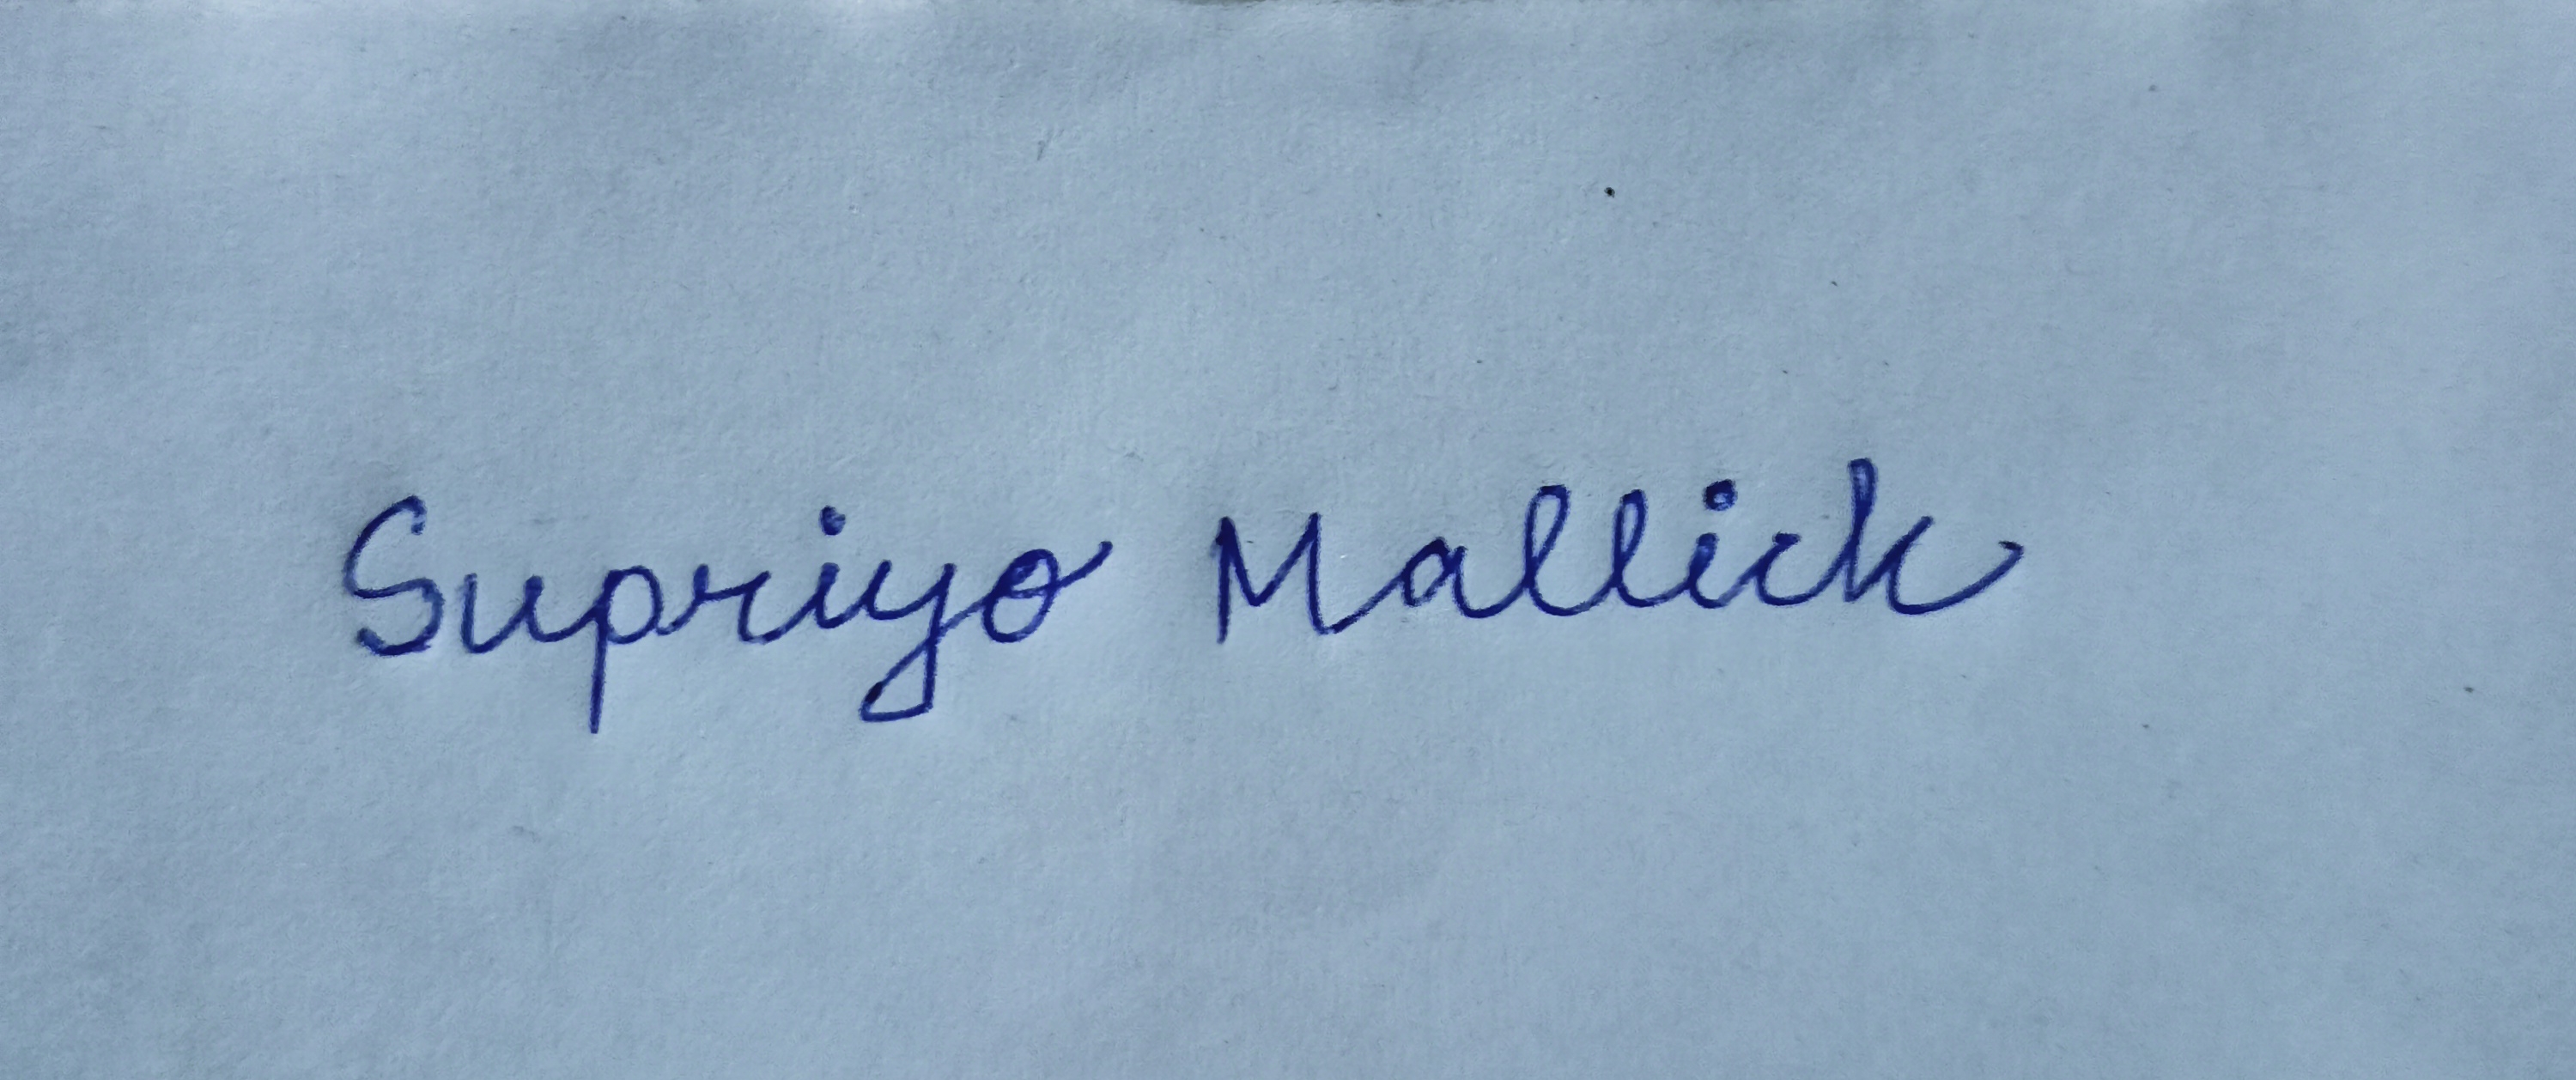 Supriyo Mallick